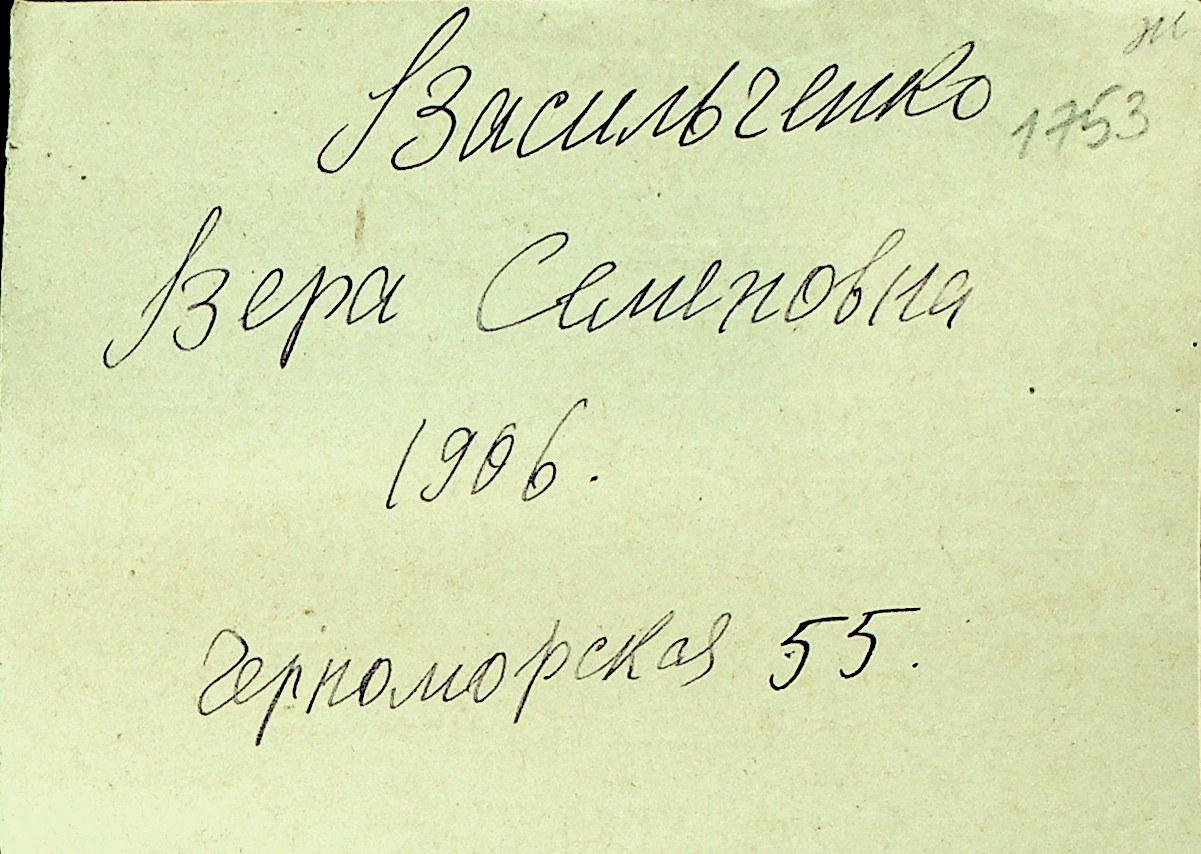 ж
Васильченко 1753
Вера Семеновна
1906.
Черноморская 55.